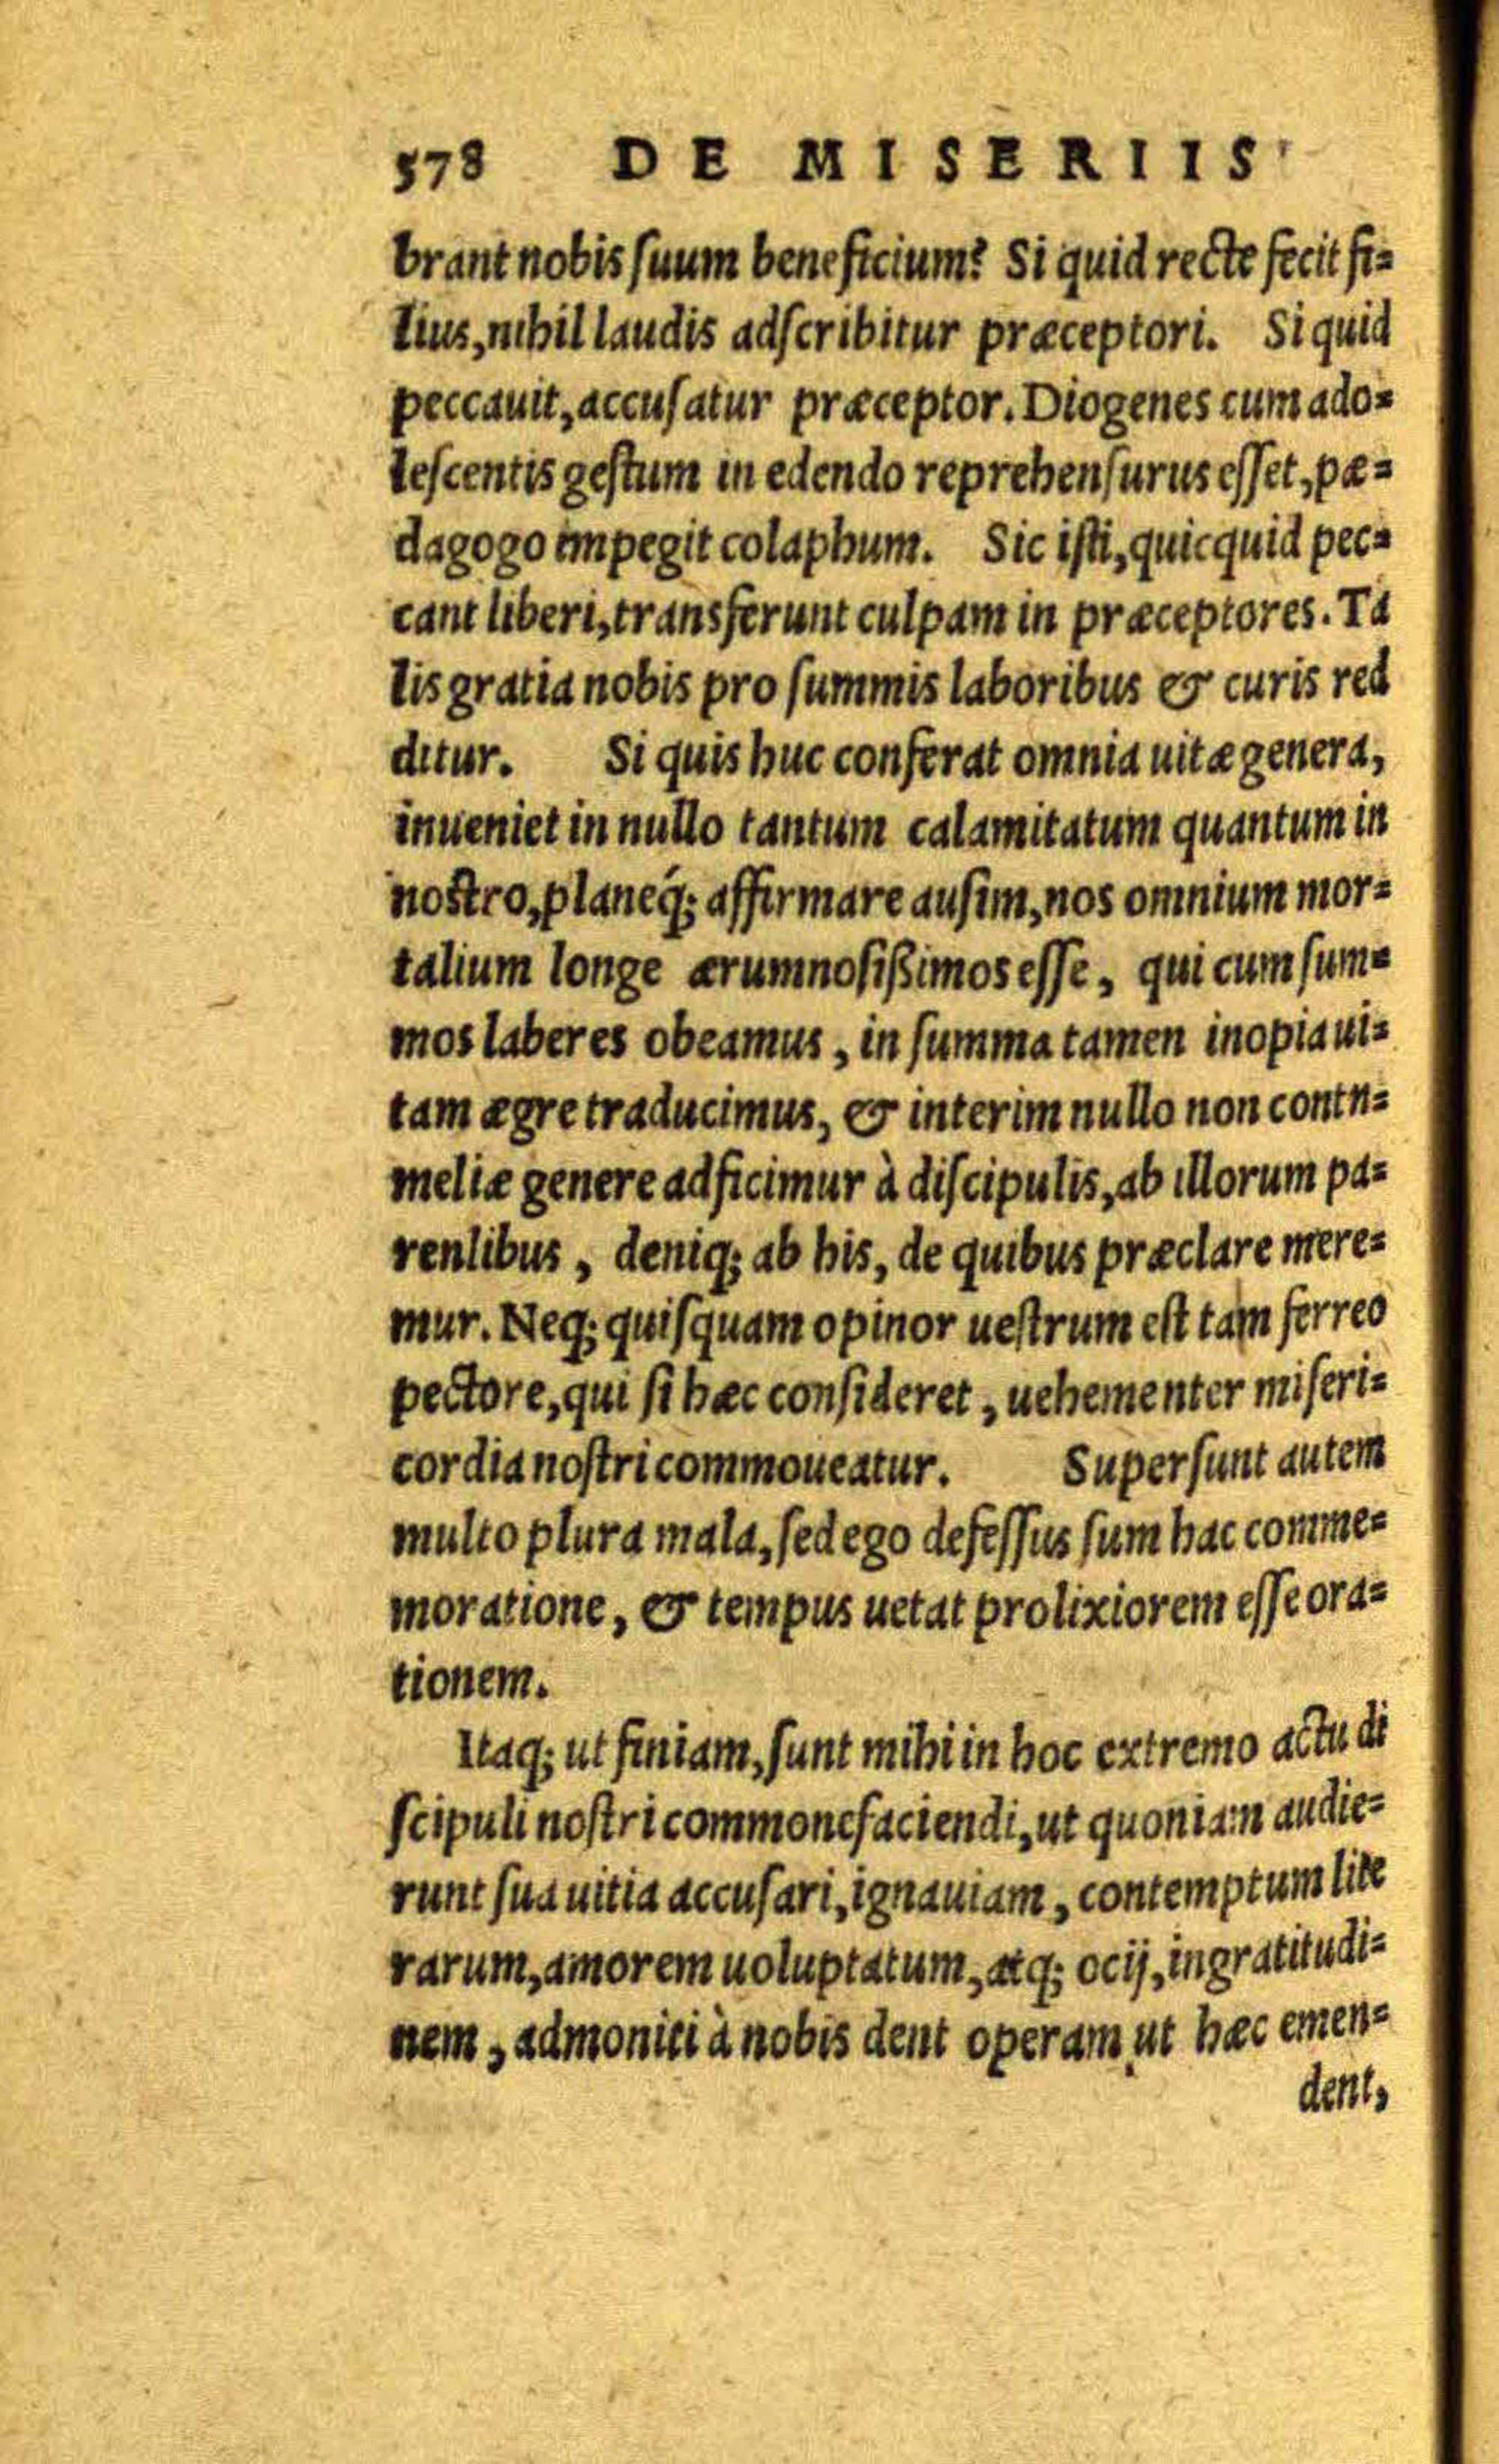 578 DE MISERIIS
brant nobis ſuum beneficium? Si quid recte fecit fi=
lius, nihil laudis adſcribitur præceptori. Si quid
peccauit, accuſatur præceptor. Diogenes cum ado=
leſcentis geſtum in edendo reprehenſurus eſſet, pæ=
dagogo impegit colaphum. Sic iſti, quicquid pec=
cant liberi, transferunt culpam in præceptores. Ta
lis gratia nobis pro ſummis laboribus & curis red
ditur. Si quis huc conferat omnia uitæ genera,
inueniet in nullo tantum calamitatum quantum in
noſtro, planeq́; affirmare auſim, nos omnium mor=
talium longe ærumnoſißimos eſſe, qui cum ſum=
mos laberes obeamus, in ſumma tamen inopia ui=
tam ægre traducimus, & interim nullo non contn=
meliæ genere adficimur à diſcipulis, ab illorum pa=
renlibus, deniq; ab his, de quibus præclare mere=
mur. Neq; quiſquam opinor ueſtrum eſt tam ferreo
pectore, qui ſi hæc conſideret, uehementer miſeri=
cordia noſtri commoueatur. Superſunt autem
multo plura mala, ſed ego defeſſus ſum hac comme=
moratione, & tempus uetat prolixiorem eſſe ora=
tionem.
Itaq; ut finiam, ſunt mihi in hoc extremo actu di
ſcipuli noſtri commonefaciendi, ut quoniam audie=
runt ſua uitia accuſari, ignauiam, contemptum lite
rarum, amorem uoluptatum, atq; ocij, ingratitudi=
nem, admoniti à nobis dent operam ut hæc emen=
dent,